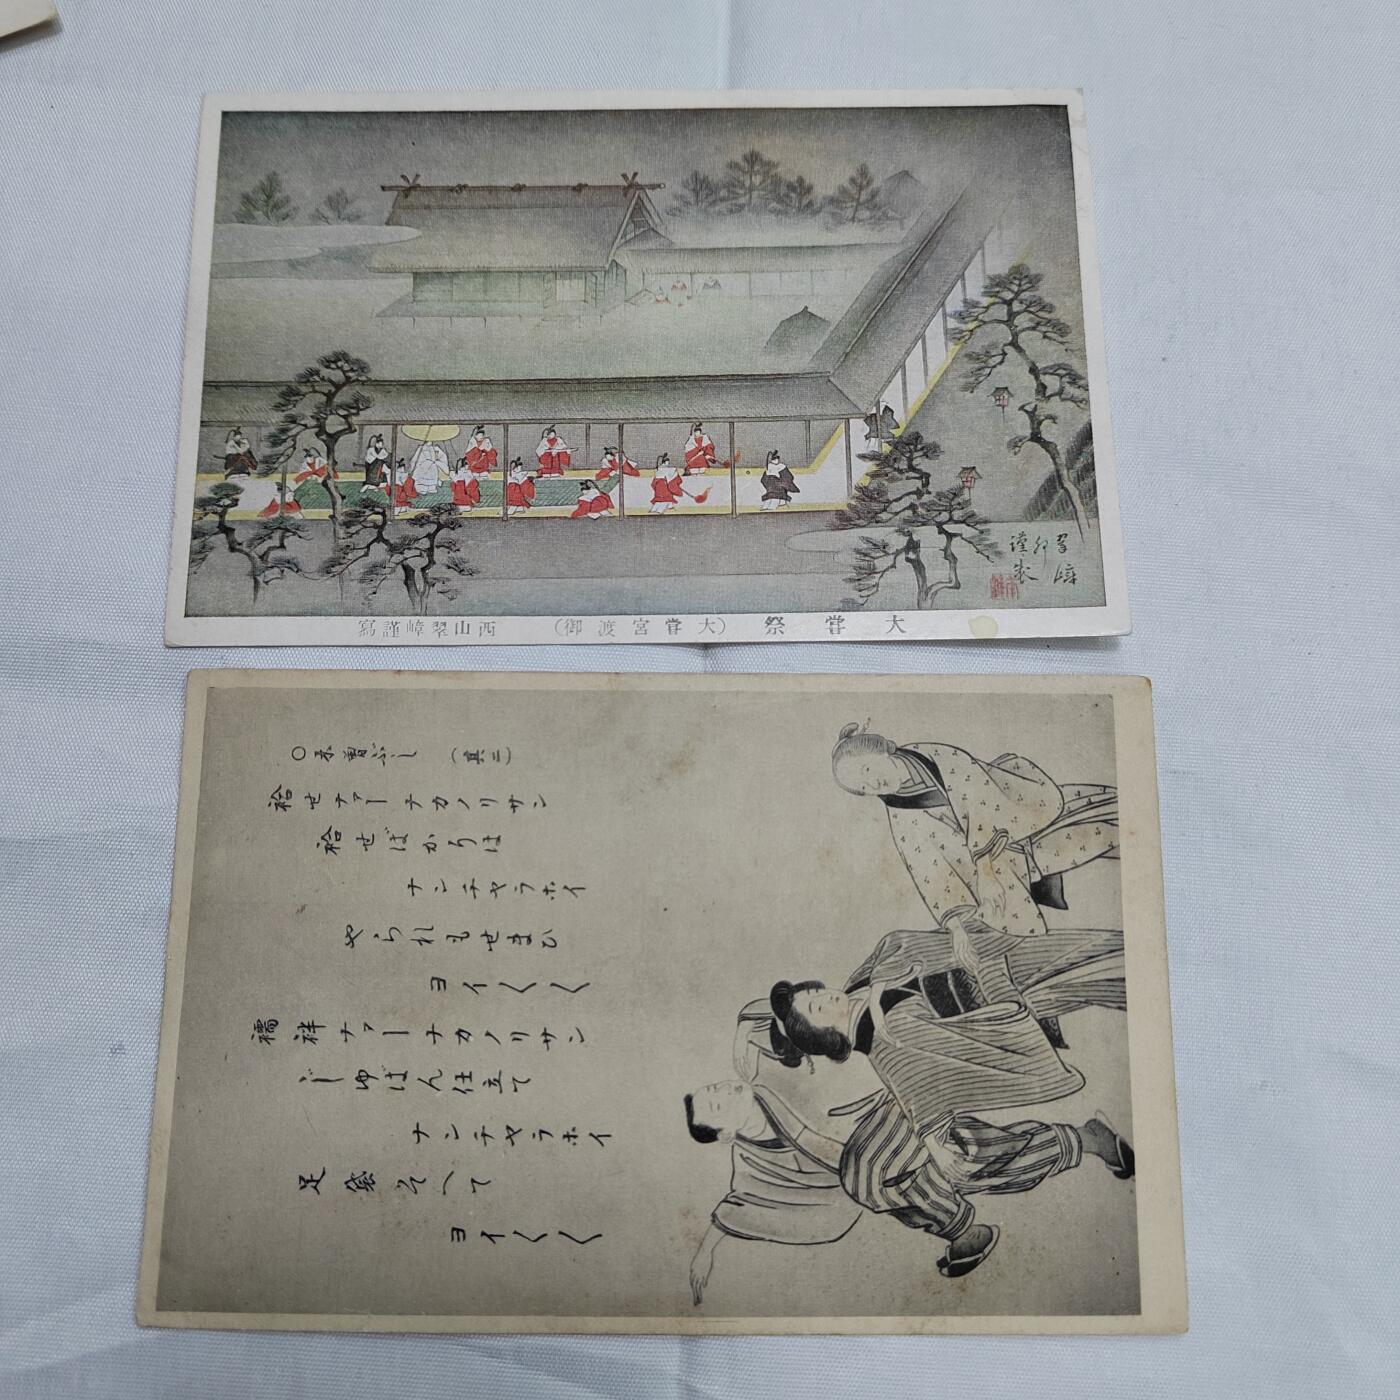 大嘗祭（大嘗宮渡御）西山翠嶂謹寫
翠嶂
○木曽ぶし（其二）
袷せナァーナカノリサン
袷せばかりは
ナンチヤラホイ
やられもせまひ
ヨイ〱〱
襦袢ナァーナカノリサン
じゆばん仕立て
ナンチヤラホイ
足袋そへて
ヨイ〱〱